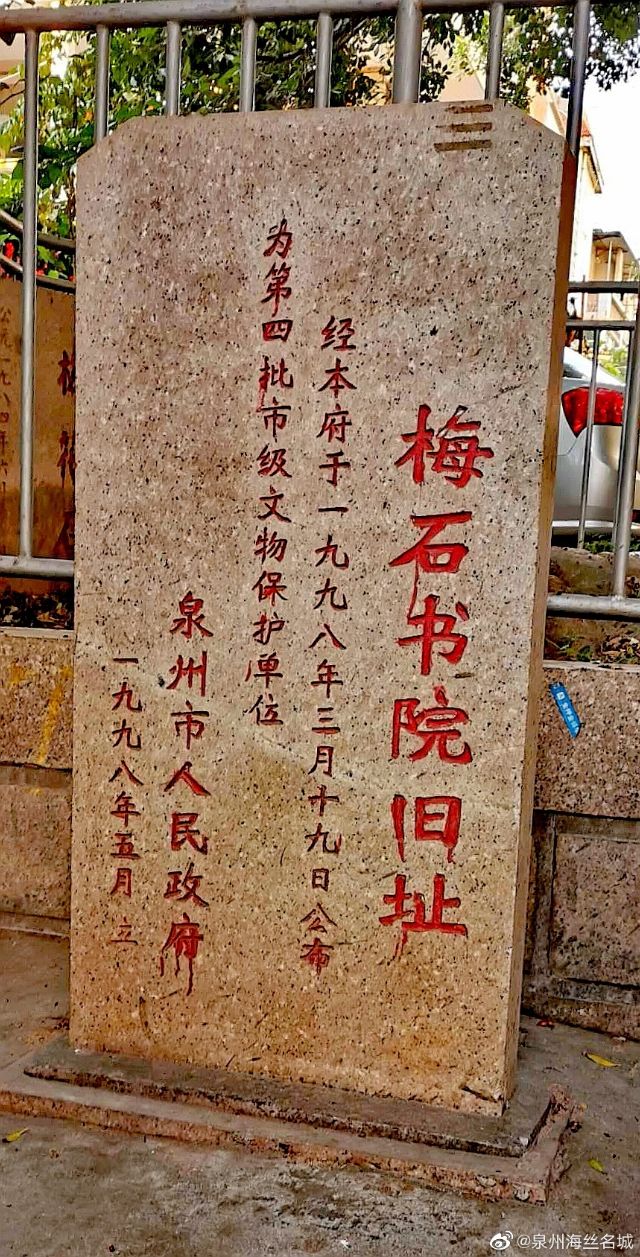 梅石书院旧址
经本府于一九九八年三月十九日公布
为第四批市级文物保护单位
泉州市人民政府
一九九八年五月 立
@泉州海丝名城